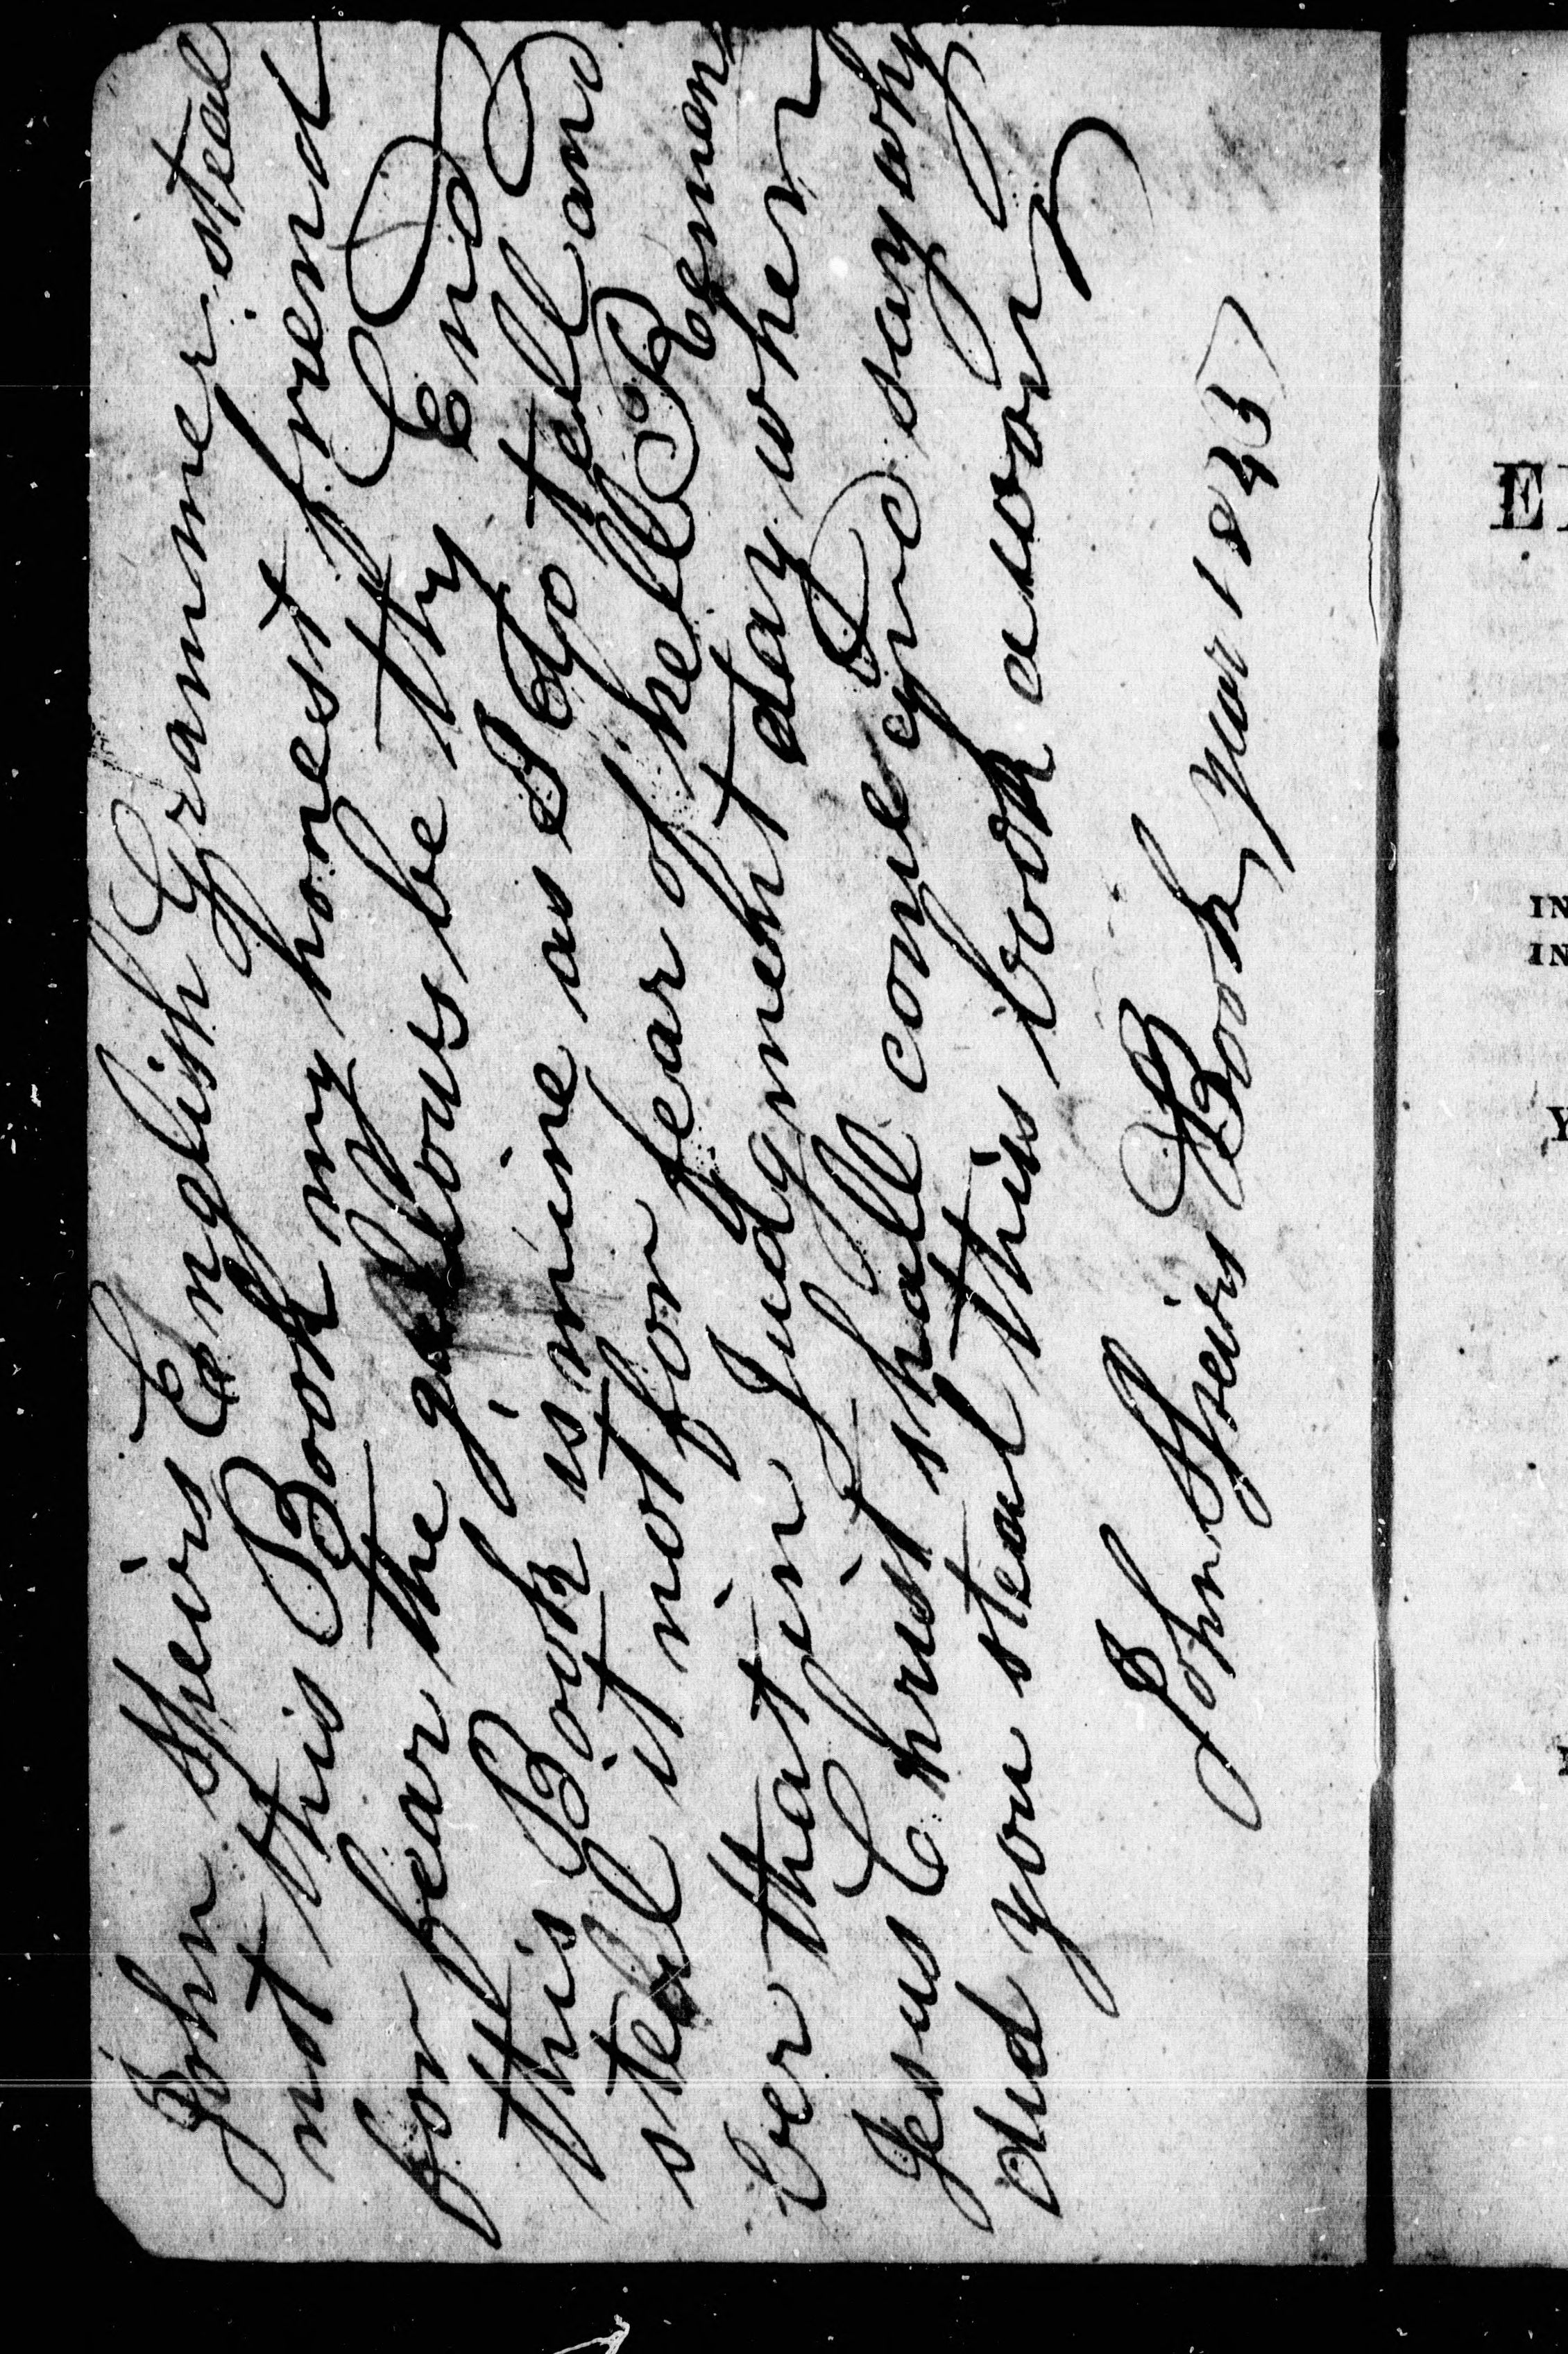 John Speirs English Grammer steal
not this Book my honest friend
for fear the gallows be thy End
this Book is mine as I do tell and
steal it not for fear of hell Remem
ber that in Judgment day when
Jesus Christ shall come and say why
did you steal this book away
John Speirs Book year 1843
E
IN
IN
Y